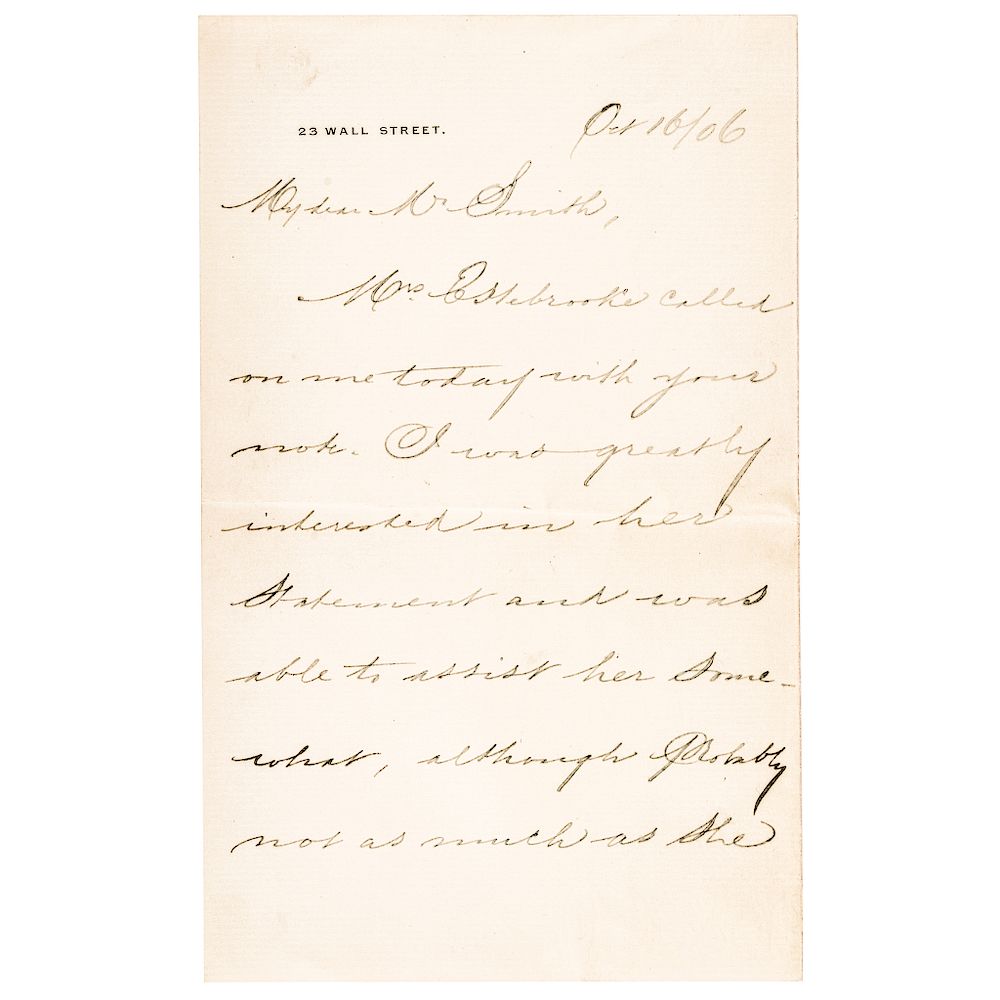 23 WALL STREET.
Oct 16/06
My dear Mr Smith,
Mrs Estebrooke called
on me today with your
note. I was greatly
interested in her
Statement and was
able to assist her Some-
what, although Probably
not as much as She